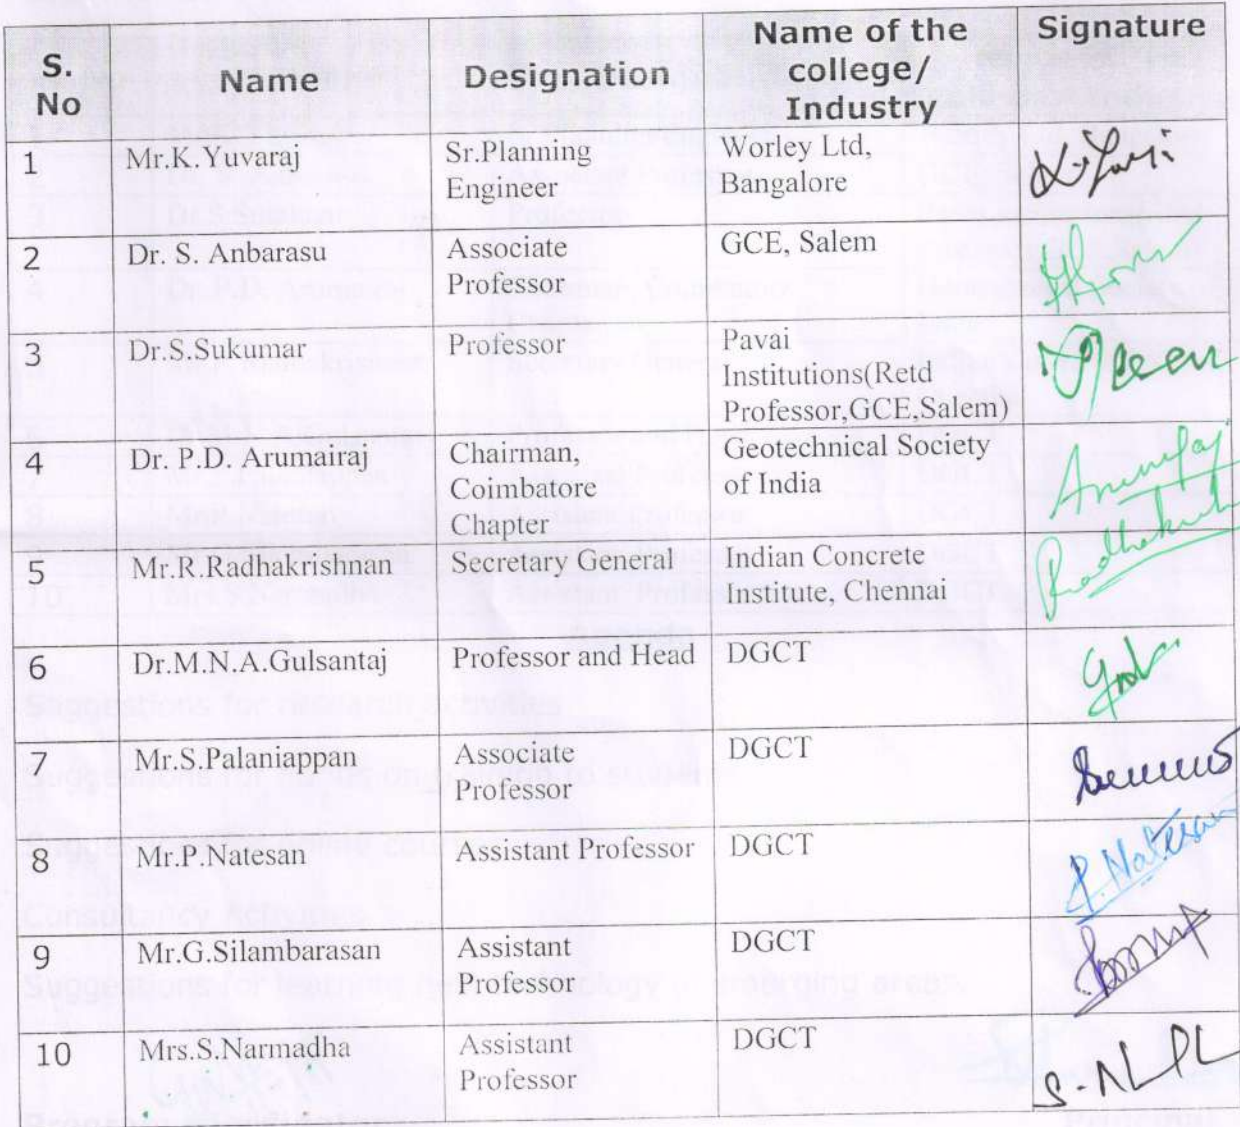 S. No Name Designation Name of the college/ Industry Signature
1 Mr.K.Yuvaraj Sr.Planning Engineer Worley Ltd, Bangalore
2 Dr. S. Anbarasu Associate Professor GCE, Salem
3 Dr.S.Sukumar Professor Pavai Institutions(Retd Professor,GCE,Salem)
4 Dr. P.D. Arumairaj Chairman, Coimbatore Chapter Geotechnical Society of India
5 Mr.R.Radhakrishnan Secretary General Indian Concrete Institute, Chennai
6 Dr.M.N.A.Gulsantaj Professor and Head DGCT
7 Mr.S.Palaniappan Associate Professor DGCT
8 Mr.P.Natesan Assistant Professor DGCT P. Natesan
9 Mr.G.Silambarasan Assistant Professor DGCT
10 Mrs.S.Narmadha Assistant Professor DGCT